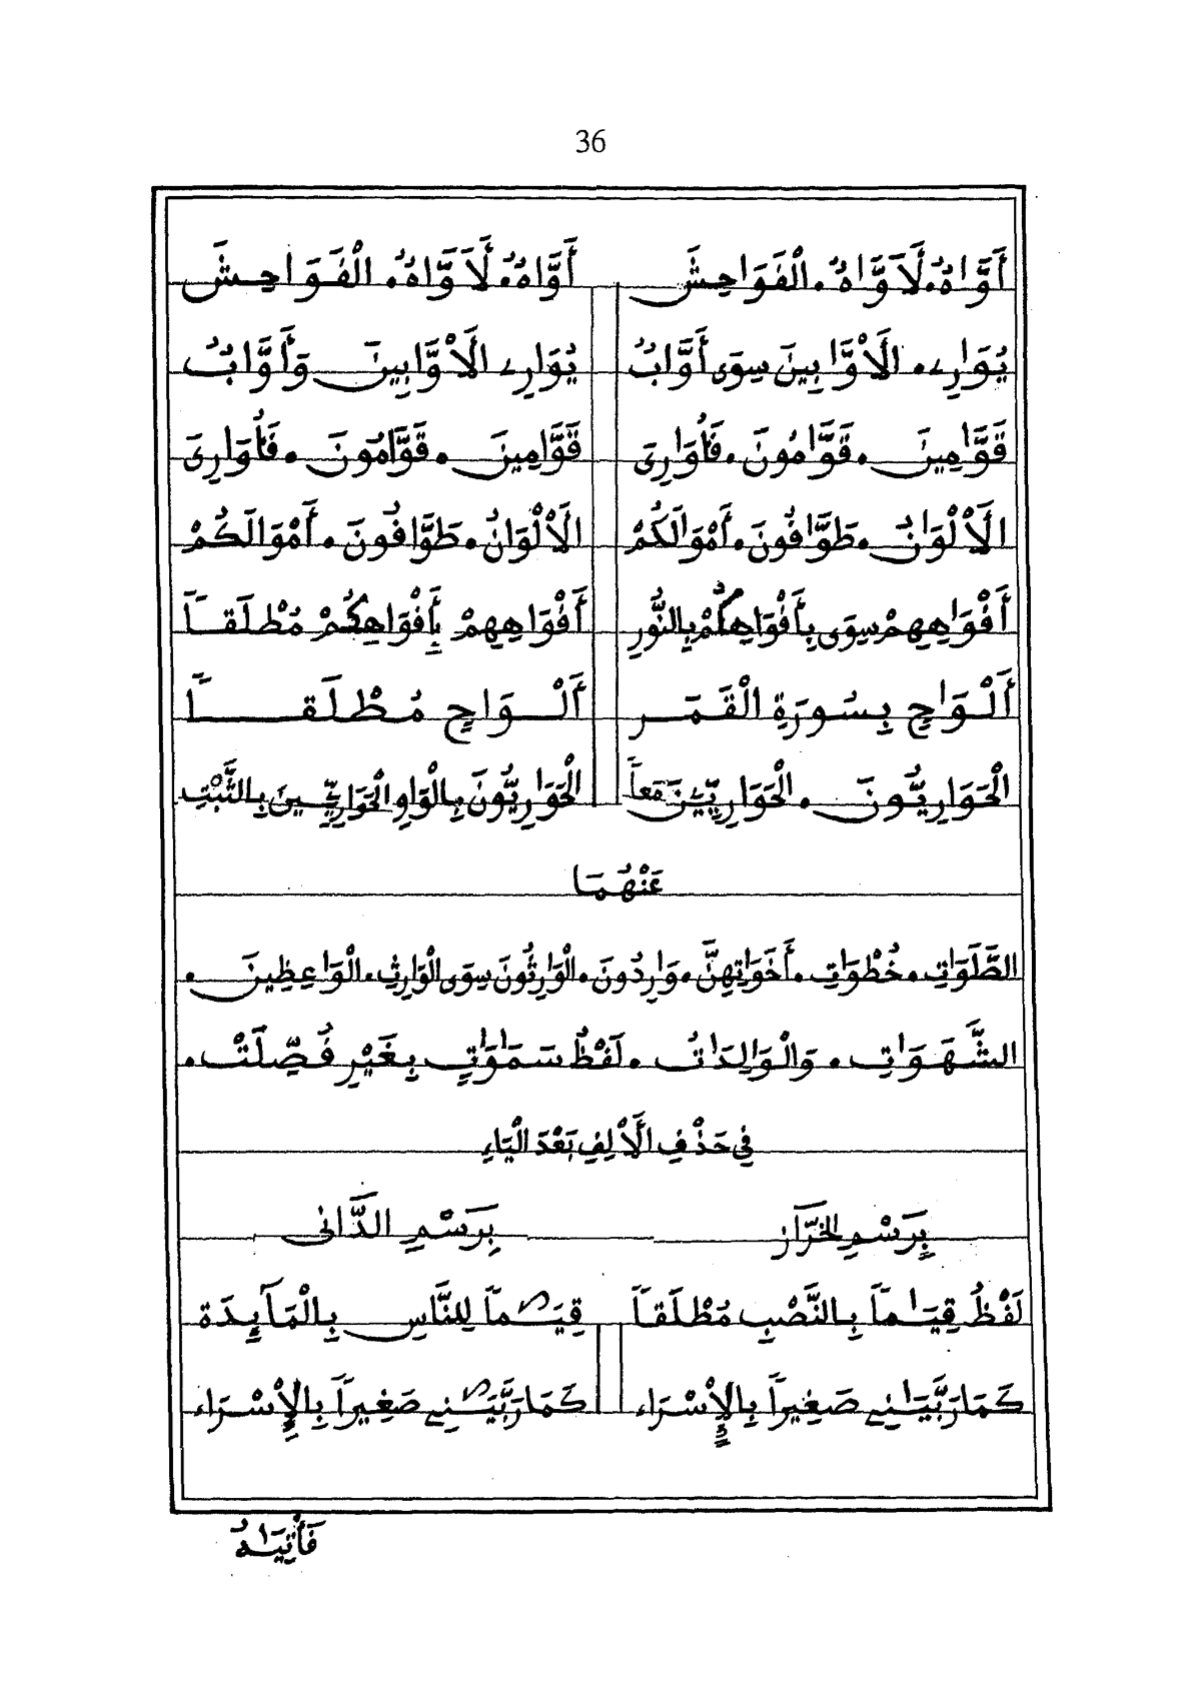 36
أَوَّٰهٌ • لَأَوَّٰهٌ • الْفَوَٰحِشَ أَوَّاهٌ • لَأَوَّاهٌ • الْفَوَاحِشَ
يُوَٰرِے • الَاْوَّٰبِينَ سِوَى أَوَّابٌ يُوَارِے الَاْوَّابِينَ وَأَوَّابٌ
قَوَّٰمِينَ • قَوَّٰمُونَ • فَأُوَٰرِىَ قَوَّامِينَ • قَوَّامُونَ • فَأُوَارِىَ
الَاْلْوَٰنُ • طَوَّٰفُونَ • أَمْوَٰلَكُمْ الَاْلْوَانُ • طَوَّافُونَ • أَمْوَالَكُمْ
أَفْوَٰهِهِمْ سِوَى بِأَفْوَاهِكُمْ بِالنُّورِ أَفْوَاهِهِمْ بِأَفْوَاهِكُمْ مُطْلَقاً
أَلْوَٰحٍ بِسُورَةِ الْقَمَرِ أَلْوَاحٍ مُطْلَقاً
الْحَوَارِيُّونَ • الْحَوَارِيِّينَ مَعاً الْحَوَارِيُّونَ بِالْوَاوِ الْحَوَارِيِّينَ بِالثَّبْتِ
عَنْهُمَا
الصَّلَوَٰتِ • خُطْوَٰتِ • أَخَوَٰتِهِنَّ • وَٰرِدُونَ • الْوَٰرِثُونَ سِوَى الْوَارِثِ • الْوَٰعِظِينَ •
الشَّهَوَٰتِ • وَالْوَٰلِدَٰتُ • لَفْظُ سَمَٰوَٰتٍ بِغَيْرِ فُصِّلَتْ •
فِي حَذْفِ الَاْلِفِ بَعْدَ الْيَاءِ
بِرَسْمِ الْخَرَّازِ بِرَسْمِ الدَّانِى
لَفْظُ قِيَٰماً بِالنَّصْبِ مُطْلَقاً قِيَٰماً لِلنَّاسِ بِالْمَآئِدَةِ
كَمَا رَبَّيَٰنِے صَغِيراً بِالْإِسْرَاءِ كَمَا رَبَّيَٰنِے صَغِيراً بِالْإِسْرَاءِ
فَأْتِيَٰهُ